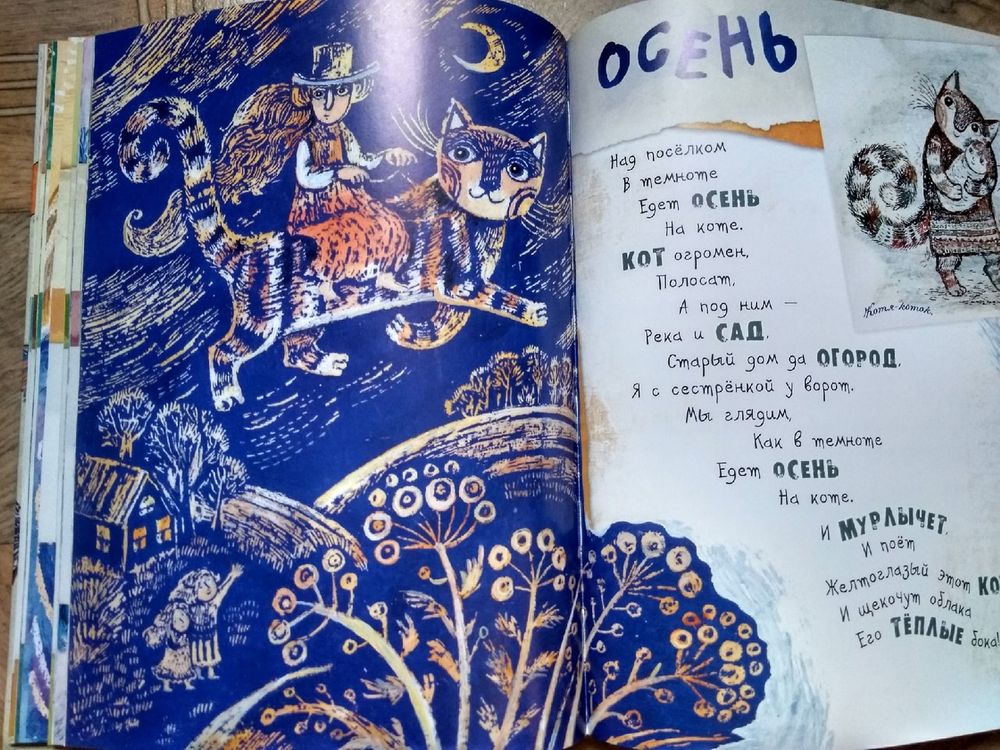 ОСЕНЬ
Над посёлком
В темноте
Едет ОСЕНЬ
На коте.
КОТ огромен,
Полосат,
А под ним —
Река и САД,
Старый дом да ОГОРОД,
Я с сестрёнкой у ворот.
Мы глядим,
Как в темноте
Едет ОСЕНЬ
На коте.
И МУРЛЫЧЕТ,
И поёт
Желтоглазый этот КО
И щекочут облака
Его ТЁПЛЫЕ бока!
Котя-коток.